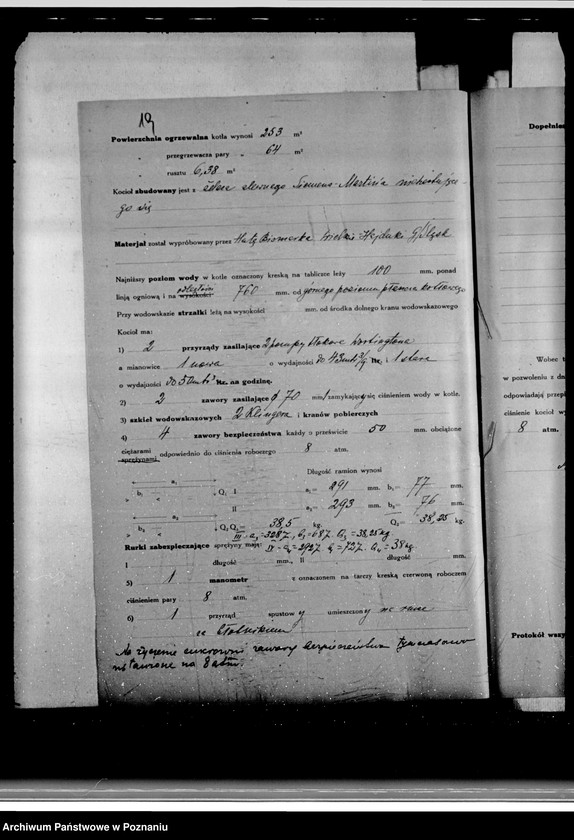 19
Powierzchnia ogrzewalna kotła wynosi 253 m²
" przegrzewacza pary " 64 m²
" rusztu 6,38 m²
Kocioł zbudowany jest z żelaza zlewnego Siemens-Martin'a niehartujące-
go się
Materjał został wypróbowany przez Hutę Bismarka Wielkie Hajduki G/Śląsk
Najniższy poziom wody w kotle oznaczony kreską na tabliczce leży 100 mm. ponad
linją ogniową i na odległości wysokości 760 mm. od górnego poziomu płaszcza kotłowego
Przy wodowskazie strzałki leżą na wysokości mm. od środka dolnego kranu wodowskazowego
Kocioł ma:
1) 2 przyrządy zasilające 2 pompy tłokowe Worthingtona
a mianowicie 1 nowa o wydajności do 43 mtr³/g kg. i 1 stara
o wydajności do 50 mtr³ kg. na godzinę.
2) 2 zawory zasilające ø 70 mm/ zamykające się ciśnieniem wody w kotle.
3) szkieł wodowskazowych 2 Klingera i kranów pobierczych
4) 4 zawory bezpieczeństwa każdy o prześwicie 50 mm. obciążone
ciężarami
sprężynami odpowiednio do ciśnienia roboczego 8 atm.
Długość ramion wynosi
a₁ b₁ Q₁ I a₁= 291 mm. b₁= 77 mm.
II a₂= 293 mm. b₂= 76 mm.
a₂ b₂ Q₂ Q₁= 38,5 kg. Q₂= 38,25 kg.
III - a₃=328 b₃=68 Q₃=38,25 kg
Rurki zabezpieczające sprężyny mają: IV - a₄=292 b₄=72 Q₄=38 kg.
I długość mm., II długość mm.
5) 1 manometr z oznaczonem na tarczy kreską czerwoną roboczem
ciśnieniem pary 8 atm.
6) 1 przyrząd spustowy umieszczony na rurze
ze
Na życzenie cukrowni zawory bezpieczeństwa tymczasowo
nastawione na 8 atm.
Dopełnie
Wobec t
w pozwoleniu z dn
odpowiadają przepi
ciśnienie kocioł w
8 atm.
Protokół wszy
Archiwum Państwowe w Poznaniu